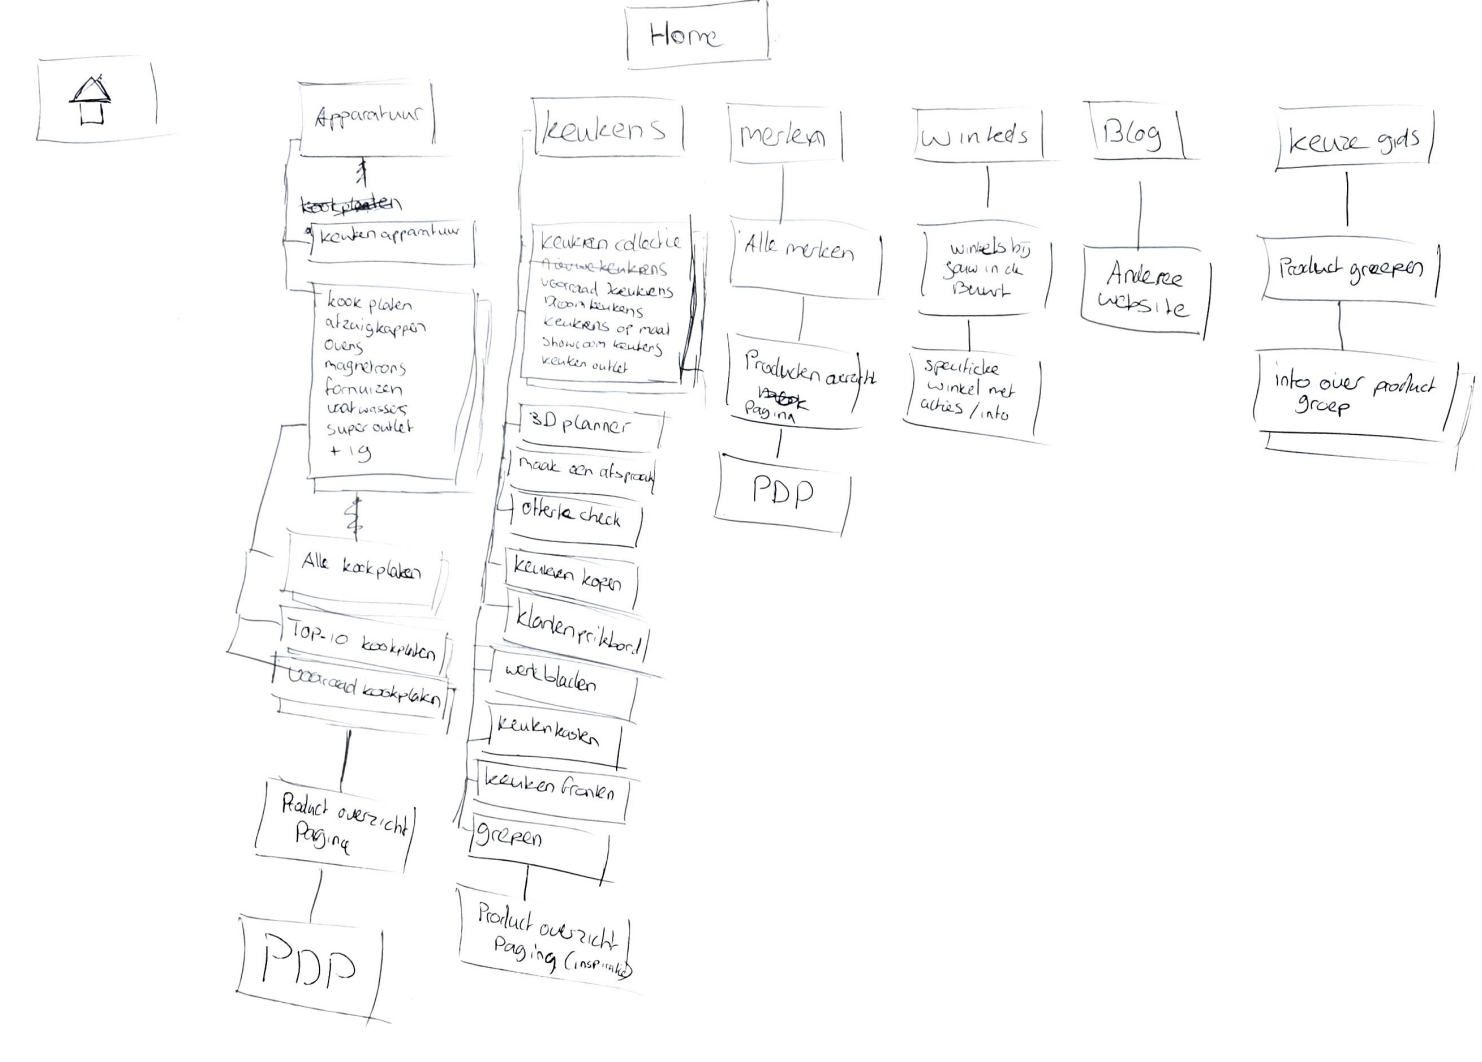 Home
Apparatuur
kookplaten
keukenapparatuur
kookplaten
afzuigkappen
ovens
magnetrons
fornuizen
vaatwassers
super outlet
+ 19
Alle kookplaten
TOP-10 kookplaten
voorraad kookplaten
Product overzicht
Pagina
PDP
keukens
keuken collectie
nieuwe keukens
voorraad keukens
Droomkeukens
keukens op maat
showroom keukens
keuken outlet
3D planner
maak een afspraak
offerte check
keuken kopen
klantenprikbord
werkbladen
keukenkasten
keuken fronten
grepen
Product overzicht
Pagina (inspiratie)
merken
Alle merken
Producten overzicht
pagina
PDP
winkels
winkels bij
jouw in de
Buurt
specifieke
winkel met
acties / info
Blog
Andere
website
keuze gids
Product groepen
info over product
groep